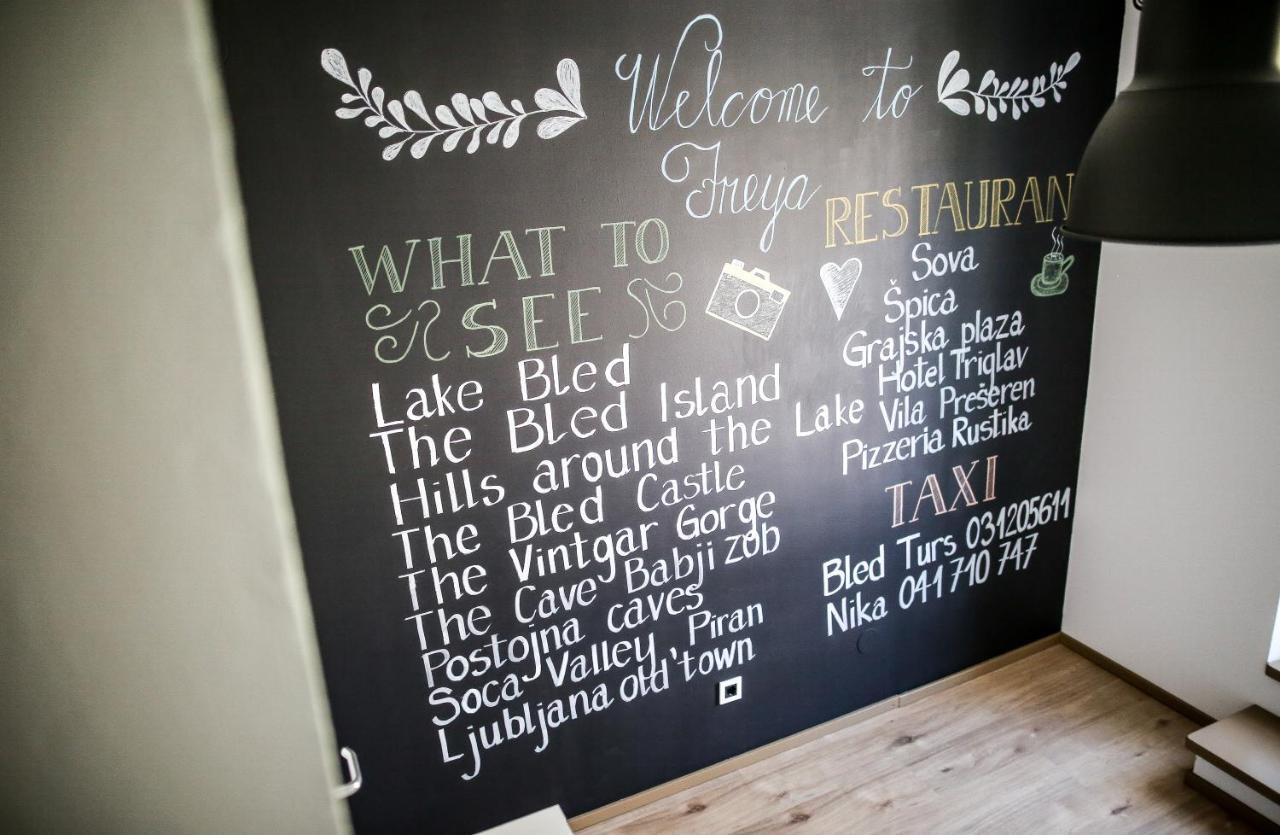 Welcome to
Freya
WHAT TO
SEE
Lake Bled
The Bled Island
Hills around the Lake
The Bled Castle
The Vintgar Gorge
The Cave Babji zob
Postojna caves
Soca Valley Piran
Ljubljana old town
RESTAURAN
Sova
Špica
Grajska plaza
Hotel Triglav
Vila Prešeren
Pizzeria Rustika
TAXI
Bled Turs 031205611
Nika 041 710 747